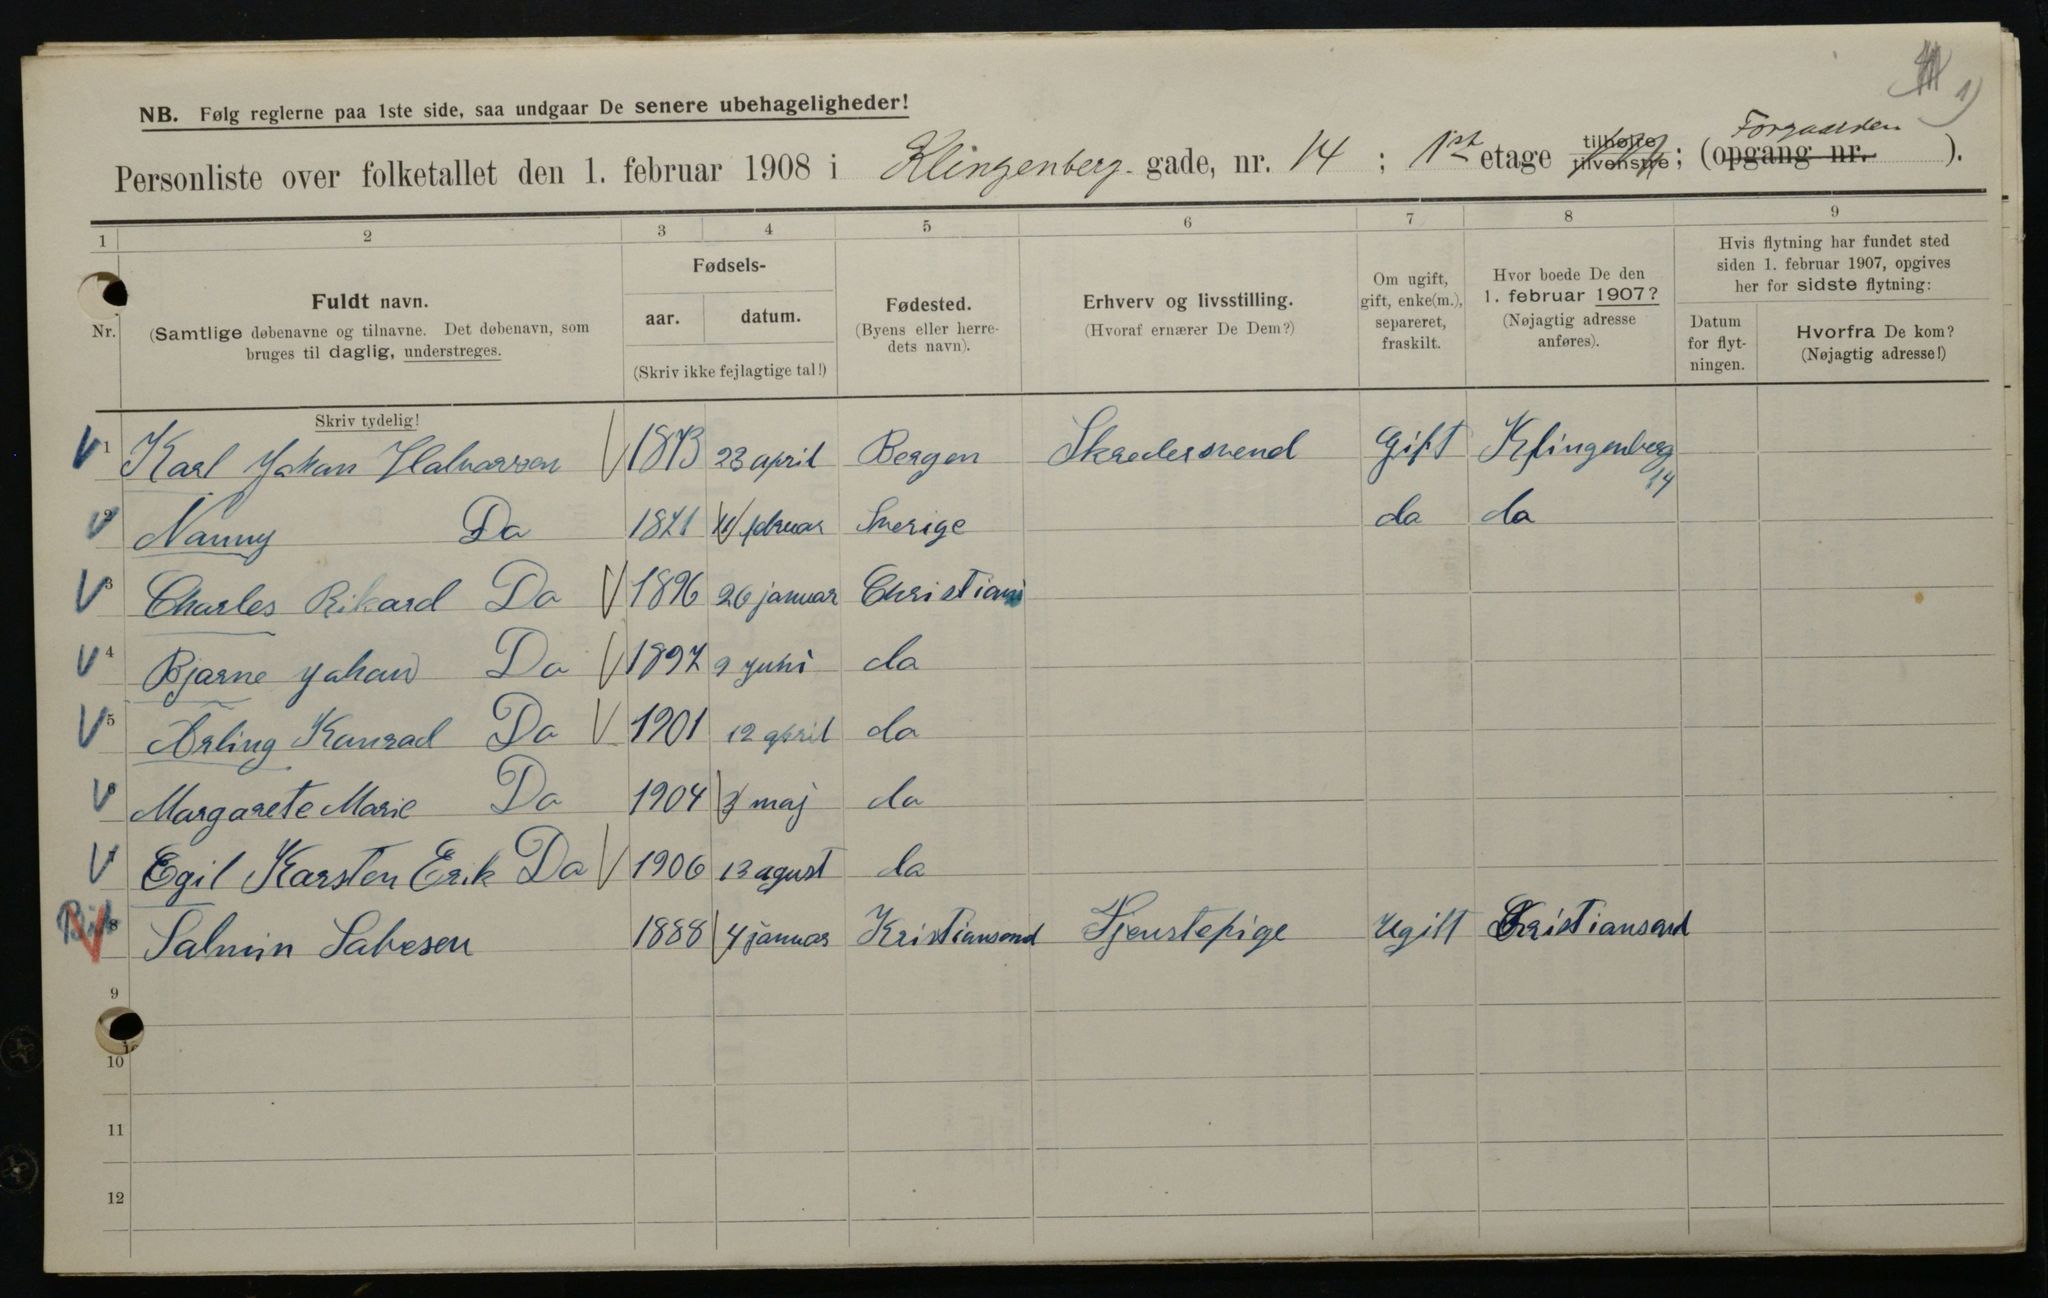 1)
NB. Følg reglerne paa 1ste side, saa undgaar De senere ubehageligheder!
Forgaarden
Personliste over folketallet den 1. februar 1908 i Klingenberg- gade, nr. 14 ; 1st etage tilhøire tilvenstre; (opgang nr. ).
1 2 3 4 5 6 7 8 9
Nr.
Fuldt navn.
(Samtlige døbenavne og tilnavne. Det døbenavn, som
bruges til daglig, understreges.
Skriv tydelig!
Fødsels-
aar. datum.
(Skriv ikke fejlagtige tal!)
Fødested.
(Byens eller herre-
dets navn).
Erhverv og livsstilling.
(Hvoraf ernærer De Dem?)
Om ugift,
gift, enke(m.),
separeret,
fraskilt.
Hvor boede De den
1. februar 1907?
(Nøjagtig adresse
anføres).
Hvis flytning har fundet sted
siden 1. februar 1907, opgives
her for sidste flytning:
Datum
for flyt-
ningen.
Hvorfra De kom?
(Nøjagtig adresse!)
1 Karl Johan Halvorsen 1873 23 april Bergen Skredersvend Gift Klingenberg
14
2 Nanny Do 1871 februar Sverige do do
3 Charles Rikard Do 1896 26 januar Christiani
4 Bjarne Johan Do 1897 9 Juni do
5 Arling Konrad Do 1901 12 april do
6 Margarete Marie Do 1904 3 maj do
7 Egil Karsten Erik Do 1906 13 agust do
8 Salmin Salvesen 1888 4 januar Kristiansand Tjenstepige Ugift Kristiansand
9
10
11
12